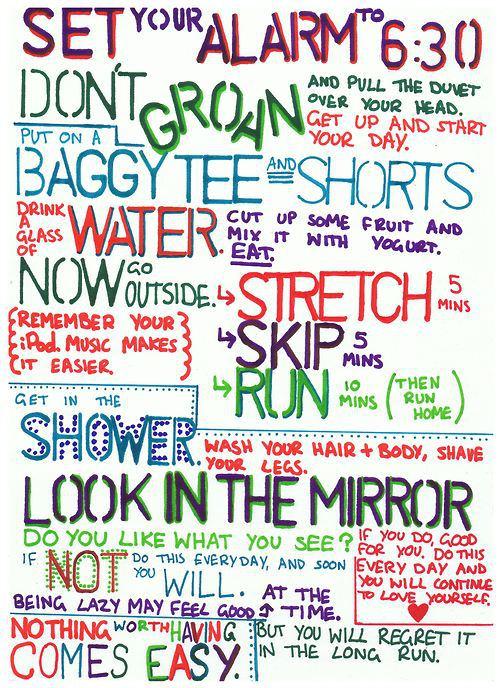 SET YOUR ALARM TO 6:30
DON'T GROAN
AND PULL THE DUVET
OVER YOUR HEAD.
GET UP AND START
YOUR DAY.
PUT ON A
BAGGY TEE AND SHORTS
DRINK
A
GLASS
OF
WATER.
CUT UP SOME FRUIT AND
MIX IT WITH YOGURT.
EAT.
NOW GO
OUTSIDE.
↳ STRETCH 5
MINS
↳ SKIP 5
MINS
↳ RUN 10
MINS
(THEN
RUN
HOME)
{REMEMBER YOUR
iPod. MUSIC MAKES
IT EASIER.}
GET IN THE
SHOWER.
WASH YOUR HAIR + BODY, SHAVE
YOUR LEGS.
LOOK IN THE MIRROR
DO YOU LIKE WHAT YOU SEE?
IF NOT DO THIS EVERYDAY, AND SOON
YOU WILL.
IF YOU DO, GOOD
FOR YOU. DO THIS
EVERY DAY AND
YOU WILL CONTINUE
TO LOVE YOURSELF.
♥
BEING LAZY MAY FEEL GOOD AT THE
↑ TIME.
BUT YOU WILL REGRET IT
IN THE LONG RUN.
NOTHING WORTH HAVING
COMES EASY.